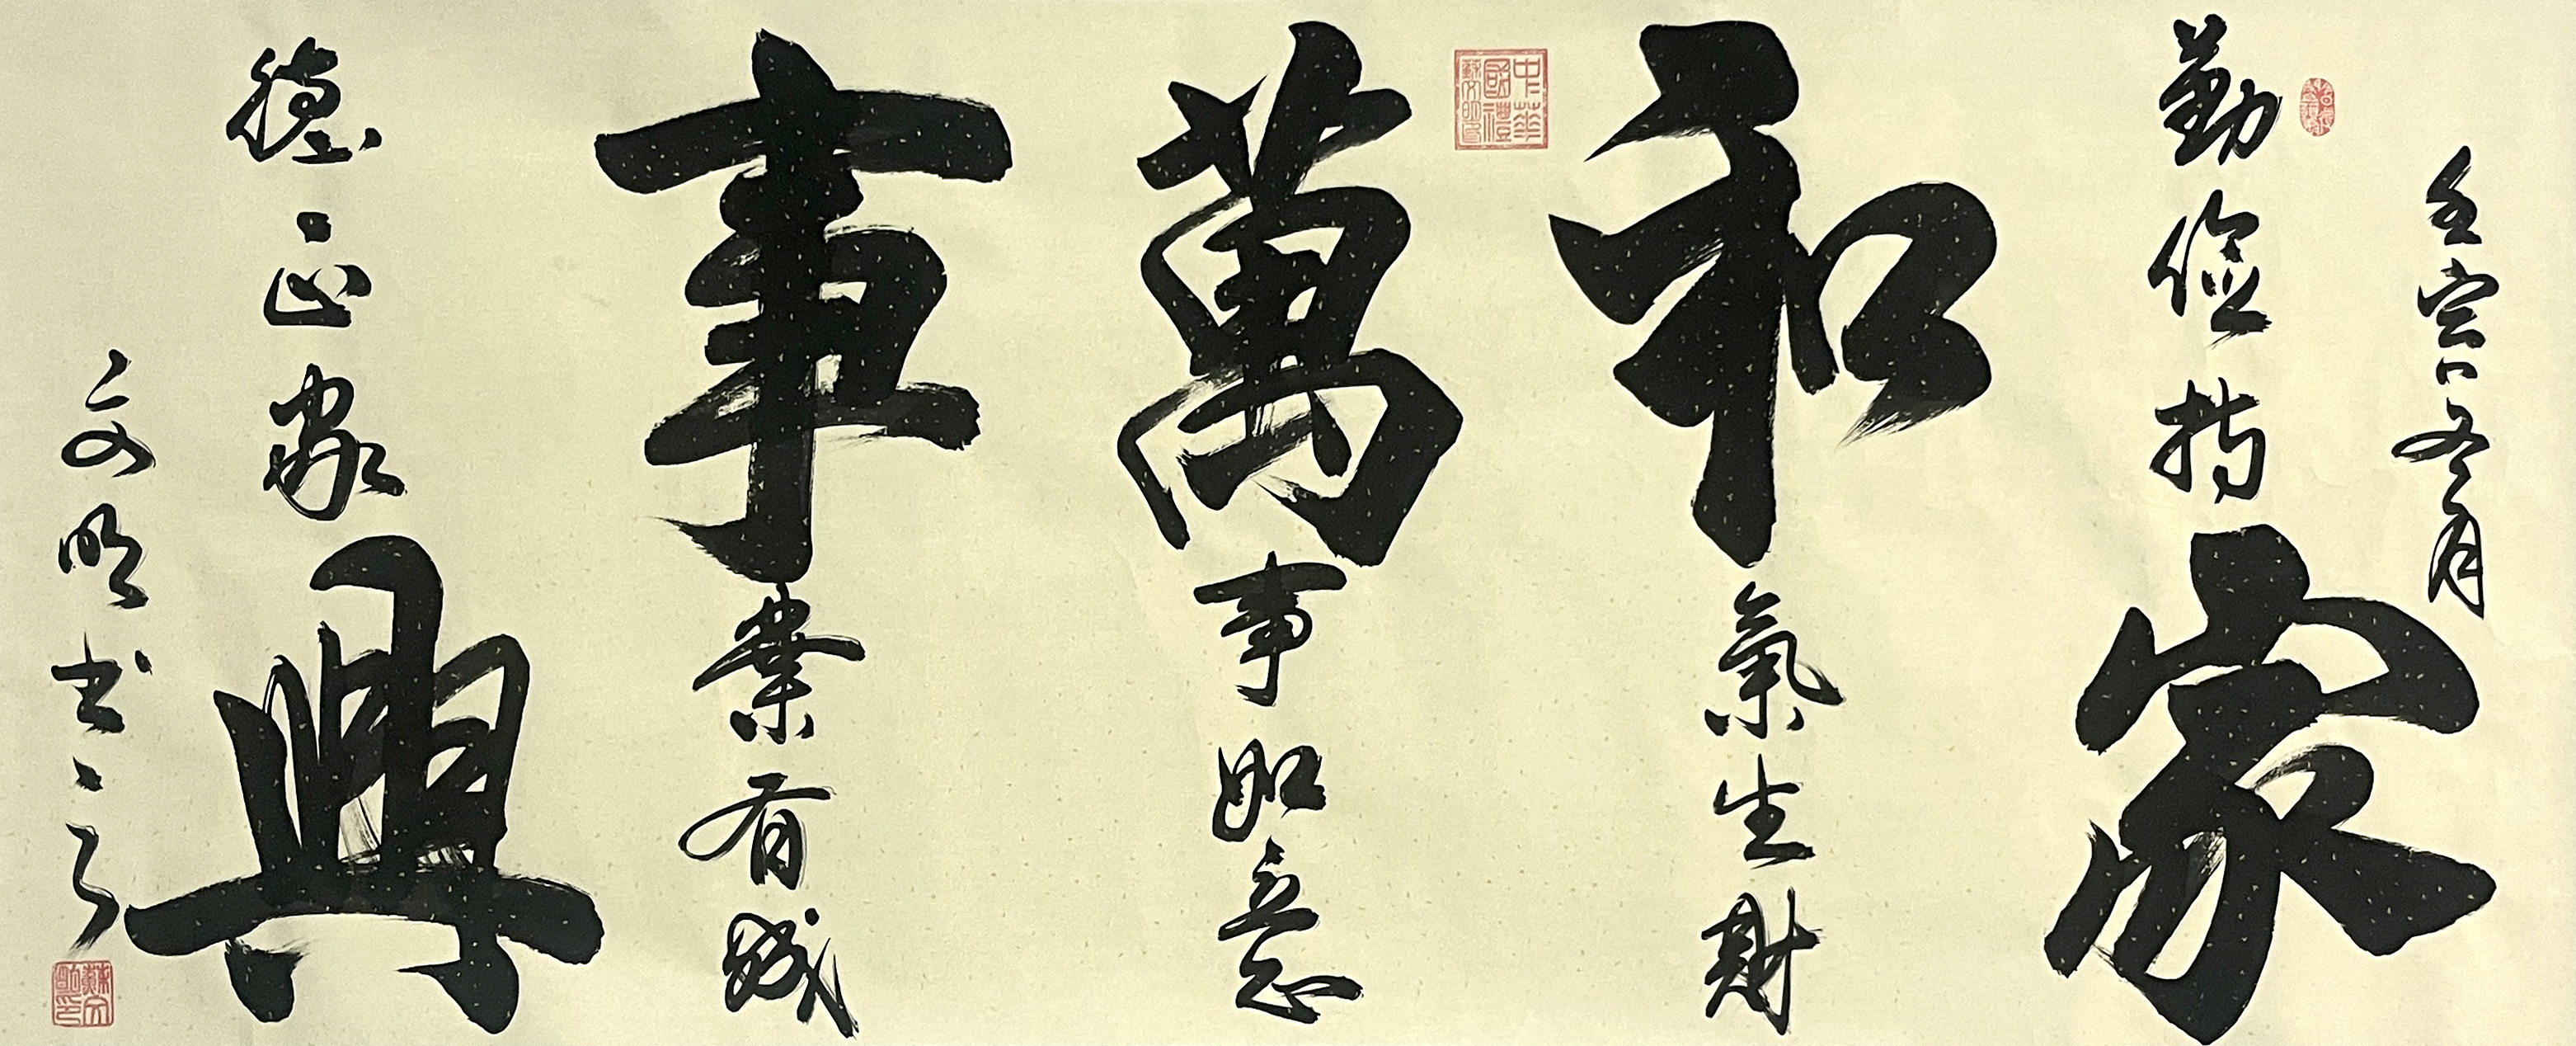 壬寅冬月
勤儉持家
和氣生財
中華國禮蘇文明印
萬事如意
事業有
德正家興
文明书
蘇文明印